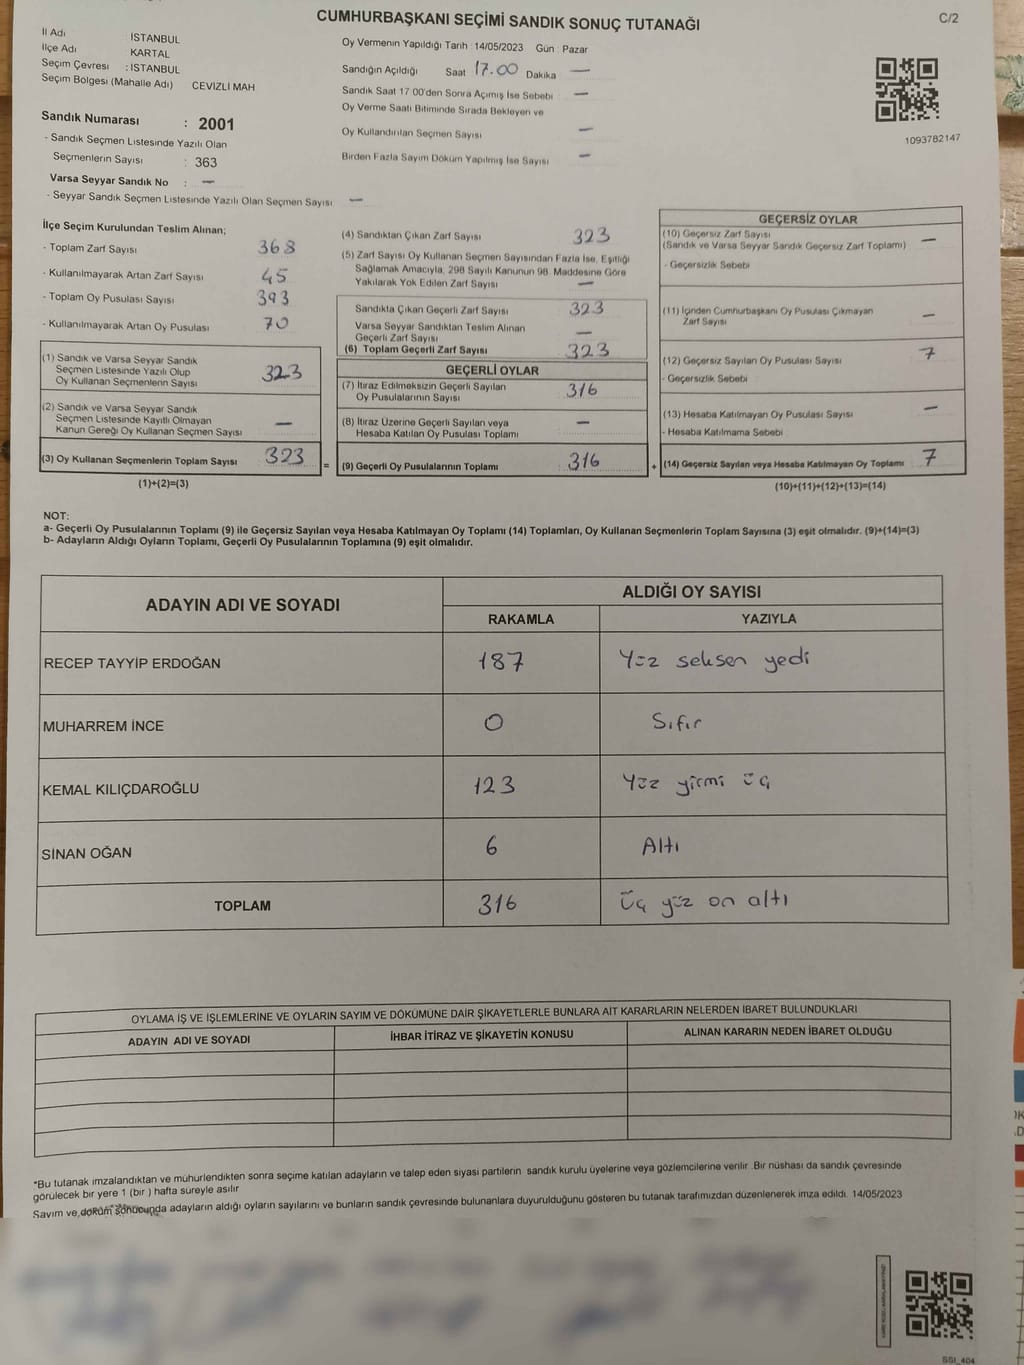 CUMHURBAŞKANI SEÇİMİ SANDIK SONUÇ TUTANAĞI
C/2
İl Adı İSTANBUL
İlçe Adı KARTAL
Seçim Çevresi : İSTANBUL
Seçim Bölgesi (Mahalle Adı) CEVİZLİ MAH
Sandık Numarası : 2001
- Sandık Seçmen Listesinde Yazılı Olan
Seçmenlerin Sayısı : 363
Varsa Seyyar Sandık No : —
- Seyyar Sandık Seçmen Listesinde Yazılı Olan Seçmen Sayısı —
Oy Vermenin Yapıldığı Tarih : 14/05/2023 Gün : Pazar
Sandığın Açıldığı Saat 17.00 Dakika —
Sandık Saat 17 00'den Sonra Açımış İse Sebebi —
Oy Verme Saati Bitiminde Sırada Bekleyen ve
Oy Kullandırılan Seçmen Sayısı —
Birden Fazla Sayım Döküm Yapılmış İse Sayısı —
1093782147
İlçe Seçim Kurulundan Teslim Alınan;
- Toplam Zarf Sayısı 368
- Kullanılmayarak Artan Zarf Sayısı 45
- Toplam Oy Pusulası Sayısı 393
- Kullanılmayarak Artan Oy Pusulası 70
(1) Sandık ve Varsa Seyyar Sandık
Seçmen Listesinde Yazılı Olup
Oy Kullanan Seçmenlerin Sayısı 323
(2) Sandık ve Varsa Seyyar Sandık
Seçmen Listesinde Kayıtlı Olmayan
Kanun Gereği Oy Kullanan Seçmen Sayısı —
(3) Oy Kullanan Seçmenlerin Toplam Sayısı 323
(1)+(2)=(3)
=
(4) Sandıktan Çıkan Zarf Sayısı 323
(5) Zarf Sayısı Oy Kullanan Seçmen Sayısından Fazla İse, Eşitliği
Sağlamak Amacıyla, 298 Sayılı Kanunun 98. Maddesine Göre
Yakılarak Yok Edilen Zarf Sayısı —
Sandıkta Çıkan Geçerli Zarf Sayısı 323
Varsa Seyyar Sandıktan Teslim Alınan
Geçerli Zarf Sayısı —
(6) Toplam Geçerli Zarf Sayısı 323
GEÇERLİ OYLAR
(7) İtiraz Edilmeksizin Geçerli Sayılan
Oy Pusulalarının Sayısı 316
(8) İtiraz Üzerine Geçerli Sayılan veya
Hesaba Katılan Oy Pusulası Toplamı —
(9) Geçerli Oy Pusulalarının Toplamı 316
+
GEÇERSİZ OYLAR
(10) Geçersiz Zarf Sayısı —
(Sandık ve Varsa Seyyar Sandık Geçersiz Zarf Toplamı)
- Geçersizlik Sebebi
(11) İçinden Cumhurbaşkanı Oy Pusulası Çıkmayan
Zarf Sayısı —
(12) Geçersiz Sayılan Oy Pusulası Sayısı 7
- Geçersizlik Sebebi
(13) Hesaba Katılmayan Oy Pusulası Sayısı —
- Hesaba Katılmama Sebebi
(14) Geçersiz Sayılan veya Hesaba Katılmayan Oy Toplamı 7
(10)+(11)+(12)+(13)=(14)
NOT:
a- Geçerli Oy Pusulalarının Toplamı (9) ile Geçersiz Sayılan veya Hesaba Katılmayan Oy Toplamı (14) Toplamları, Oy Kullanan Seçmenlerin Toplam Sayısına (3) eşit olmalıdır. (9)+(14)=(3)
b- Adayların Aldığı Oyların Toplamı, Geçerli Oy Pusulalarının Toplamına (9) eşit olmalıdır.
ADAYIN ADI VE SOYADI
ALDIĞI OY SAYISI
RAKAMLA YAZIYLA
RECEP TAYYİP ERDOĞAN 187 Yüz seksen yedi
MUHARREM İNCE 0 Sıfır
KEMAL KILIÇDAROĞLU 123 Yüz yirmi üç
SİNAN OĞAN 6 Altı
TOPLAM 316 üç yüz on altı
OYLAMA İŞ VE İŞLEMLERİNE VE OYLARIN SAYIM VE DÖKÜMÜNE DAİR ŞİKAYETLERLE BUNLARA AİT KARARLARIN NELERDEN İBARET BULUNDUKLARI
ADAYIN ADI VE SOYADI İHBAR İTİRAZ VE ŞİKAYETİN KONUSU ALINAN KARARIN NEDEN İBARET OLDUĞU
*Bu tutanak imzalandıktan ve mühürlendikten sonra seçime katılan adayların ve talep eden siyasi partilerin sandık kurulu üyelerine veya gözlemcilerine verilir. Bir nüshası da sandık çevresinde
görülecek bir yere 1 (bir ) hafta süreyle asılır
Sayım ve döküm sonucunda adayların aldığı oyların sayılarını ve bunların sandık çevresinde bulunanlara duyurulduğunu gösteren bu tutanak tarafımızdan düzenlenerek imza edildi. 14/05/2023
SSI_404